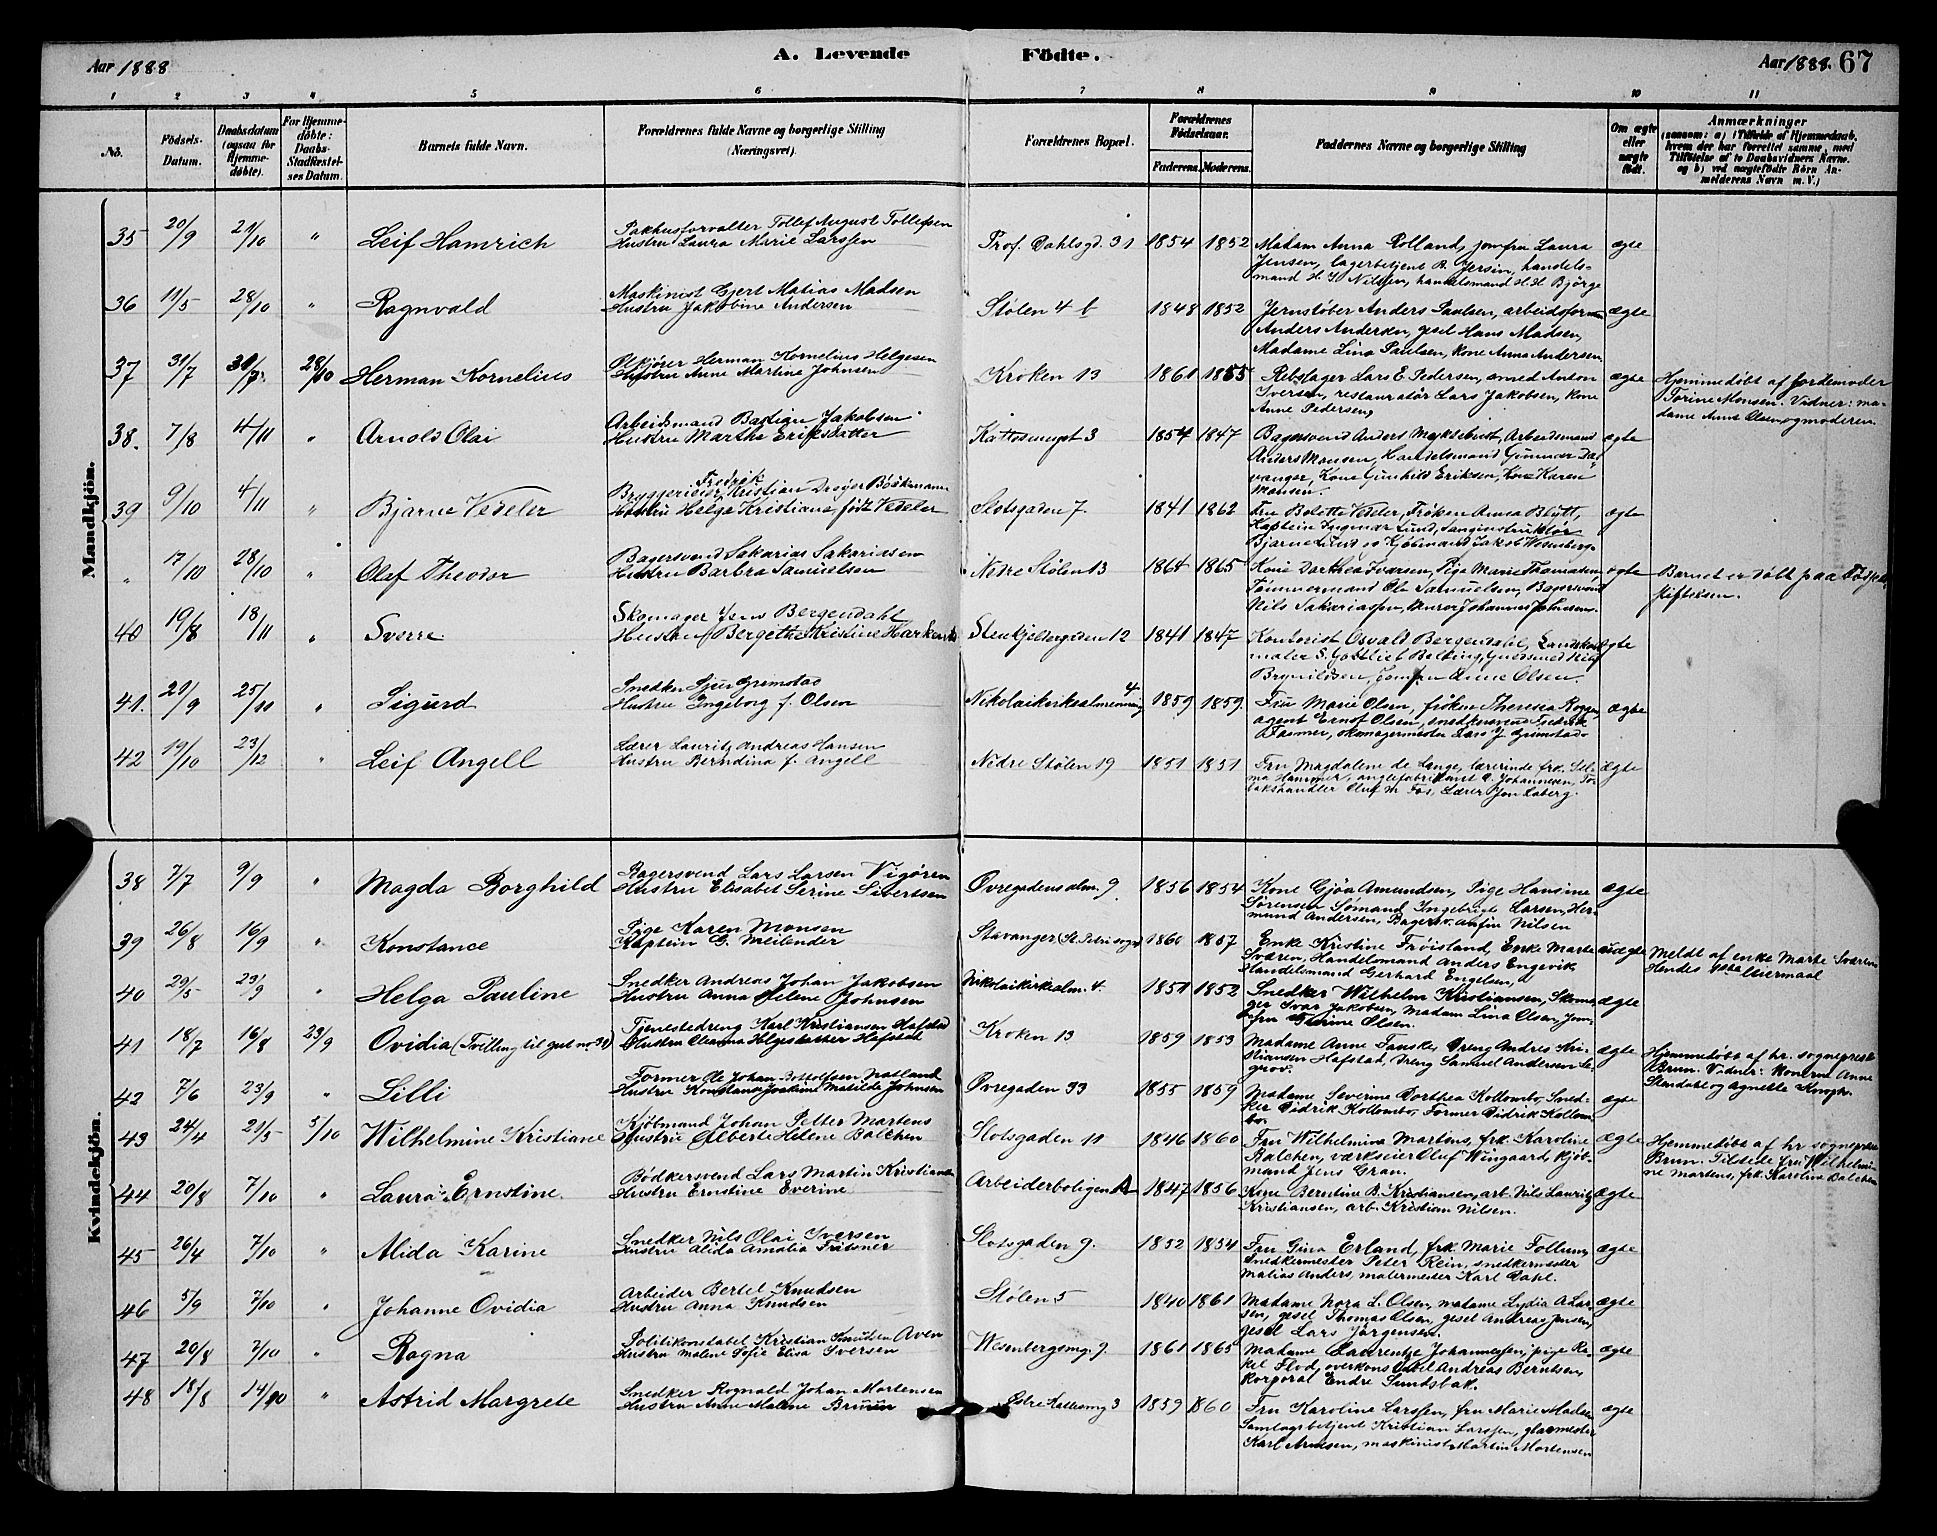 Aar 1888. A. Levende Födte. Aar 1888. 67
1 2 3 4 5 6 7 8 9 10 11
No. Födsels-Datum. Daabsdatum (ogsaa for Hjemme-döbte). For Hjemme-döbte: Daabs-Stadfæstel-ses Datum. Barnets fulde Navn. Forældrenes fulde Navne og borgerlige Stilling (Næringsvei). Forældrenes Bopæl. Forældrenes Födselsaar. Faderens. Moderens. Faddernes Navne og borgerlige Stilling Om ægte eller uægte födt. Anmærkninger
(saasom: a) i Tilfælde af Hjemmedaab, hvem der har forrettet samme, med Tilföielse af to Daabsvidners Navne, og b) ved uægtefödte Börn An-melderens Navn m. V.)
Mandkjön.
35 20/9 21/10 " Leif Hamrich Pakhusforvalter Tollef August Tollefsen
Hustru Laura Marie Larssen Prof. Dahlsgd. 31 1854 1852 Madam Anna Rolland, jomfru Laura ægte
Jensen, lagerbetjent B. Jersin, handels-
mand H. O Nilssen, handelsmand H. H. Björge
36 11/5 28/10 " Ragnvald Maskinist Gjert Matias Madsen
Hustru Jakobine Andersen Stølen 4 b 1848 1852 Jernstøber Anders Paulsen, arbeidsform ægte
Anders Andersen, gesel Hans Madsen,
Madame Lina Paulsen, kone Anna Andersen
37 31/7 31/7 28/10 Herman Kornelius Ølkjører Herman Kornelius Helgesen
Hustru Anne Martine Johnsen Kroken 13 1861 1855 Rebslager Lars E. Pedersen, smed Anton ægte Hjemmedøbt af jordemoder
Iversen, restauratør Lars Jakobsen, kone Torine Monsen. Vidner: ma-
Anne Pedersen, dame Anna Olsen og moderen.
38. 7/8 4/11 " Arnold Olai Arbeidsmand Bastian Jakobsen
Hustru Martha Eriksdatter Kattesmuget 3 1854 1847 Bagersvend Anders Myksebust, Arbeidsmand ægte
Anders Monsen, Handelsmand Gunnar Da-
vanger, Kone Gunhild Eriksen, Kone Karen
Monsen.
39 9/10 4/11 " Bjarne Vedeler Bryggerieier Fredrik Kristian Dreyer Böckmann
Hustru Helga Kristiane, født Vedeler Slotsgaden 7. 1841 1862 Fru Bolette Vedeler, Frøken Anna Blytt, ægte
Kaptein Ingmar Lund, Sanginstruktør
Bjarne Lund og Kjøbmand Jakob Wesenberg.
" 17/10 28/10 " Olaf Theodor Bagersvend Sakarias Sakariasen
Hustru Barbra Samuelsen Nedre Stølen 13 1864 1865 Kone Darthea Ivarsen, Pige Marie Thomasen, ægte Barnet er døbt paa Fødsels-
Tømmermand Ole Samuelsen, Bagersvend stiftelsen.
Nils Sakariassen, Murer Johannes Johnsen.
40 19/8 18/11 " Sverre Skomager Jens Bergendahl
Hustru Bergithe Kristine Stenkjeldergaden 12 1841 1847 Kontorist Osvald Bergendahl, ægte
maler S. Gottlieb Balling, Guldsmed
Brynildsen, Jomfru Anne Olsen.
41. 29/9 25/11 " Sigurd Snedker Sjur Grimstad
Hustru Ingeborg f. Olsen Nikolaikirkealmenning 4 1859 1859. Fru Marie Olsen, frøken Theresa ægte
agent Ernst Olsen, snedkersvend Fredrik
Fasmer, skomagermester Lars J. Grimstad.
42 19/10 23/12 " Leif Angell Lærer Lauritz Andreas Hansen
Hustru Berndina f. Angell Nedre Stølen 19 1851 1851 Fru Magdalene de Lange, lærerinde frk. Sel- ægte
ma Hammer, anglefabrikant A. Johannesen, To-
bakshandler Oluf M Fos, Lærer Jon Aaberg.
Kvindekjön.
38 7/7 9/9 " Magda Borghild Bagersvend Lars Larsen Vigøren
Hustru Elisabet Serine Sivertsen Øvregadensalm. 9 1856 1854 Kone Gjøa Amundsen, Pige Hansine ægte
Sørensen Sømand Ingebrigt Larsen, Her-
mund Andersen, Bagersv. Anfin Nilsen
39 26/8 16/9 " Konstance Pige Karen Monsen
Kaptein G. Meilender Stavanger (St. Petri sogn) 1860 1857 Enke Kristine Frøisland, Enke Marte uægte Meldt af enke Marte Sværen
Sværen, Handelsmand Anders Engevik Hendes
Handelsmand Gerhard Engelsen,
40 29/5 23/9 " Helga Pauline Snedker Andreas Johan Jakobsen
Hustru Anna Helene Johnsen Nikolaikirkealm. 4. 1851 1852 Snedker Wilhelm Kristiansen, Skoma- ægte
ger Ivar Jakobsen, Madam Lina Olsen, Jom-
fru Olsen.
41 18/7 16/8 23/9 Ovidia (Tvilling til gut no 34) Tjenestedreng Karl Kristiansen Hafstad
Hustru Oleanna Helgesdatter Hafstad Kroken 13 1859 1853 Madame Anne Tanske, Dreng Andres Kri- ægte Hjemmedøbt af hr. sogneprest
stiansen Hafstad, Dreng Samuel Andersen Brun. Vidner: konerne Anne
grov. Stendahl og Agnette Knoph.
42 7/6 23/9 " Lilli Former Ole Johan Bottolfsen Natland
Hustru Konstanse Joakine Matilde Johnsen Øvregaden 33 1855 1859 Madame Severine Dorthea Kollombo, Sned- ægte
ker Didrik Kollombo, Former Didrik Kollom-
bo.
43 24/4 21/5 5/10 Wilhelmine Kristiane Kjøbmand Johan Petter Martens
Hustru Alberte Helene Balchen Slotsgaden 11 1846 1860 Fru Wilhelmina Martens, frk. Karoline ægte Hjemmedøbt af hr sogneprest
Balchen, værkseier Oluf Wingaard, kjøb- Brun. Tilstede fru Wilhelmi-
mand Jens Gran. ne Martens, frk. Karoline Balchen
44 20/8 7/10 " Laura Ernstine. Bødkersvend Lars Martin Kristiansen
Hustru Ernstine Everine Arbeiderboligen A 1847 1856 Kone Berntine B. Kristiansen, arb. Nils Lauritz ægte
Kristiansen, arb. Kristian Nilsen.
45 26/4 7/10 " Alida Karine Snedker Nils Olai Iversen
Hustru Alida Amalia Fritsner Slotsgaden 9. 1852 1854 Fru Gina Erland, frk. Marie Follum, ægte
Snedkermester Peter Rein, snedkermester
Matias Anders, malermester Karl Dahl.
46 5/9 7/10 " Johanne Ovidia Arbeider Bertel Knudsen
Hustru Anna Knudsen Stølen 5 1840 1861 Madame Nora L. Olsen, madame Lydia A Lar- ægte
sen, gesel Thomas Olsen, gesel Andreas Jensen,
gesel Lars Jørgensen.
47 20/8 7/10 " Ragna Politikonstabel Kristian Knudsen Aven
Hustru Malene Sofie Elisa Iversen Wesenbergsmg. 9 1861 1865 Madame Laurentze Johannesen, pige Ra- ægte
kel Flod, overkonstabel Andreas Berntsen,
korporal Endre Sundsbak.
48 18/8 14/10 " Astrid Margrete Snedker Rognald Johan Mortensen
Hustru Anne Malene Bruun Østre Kattesmg 3 1859 1860 Fru Karoline Larssen, fru Marie Madsen ægte
Samlagsbetjent Kristian Larssen, glasmester
Karl Arnesen, maskinist Martin Mortensen